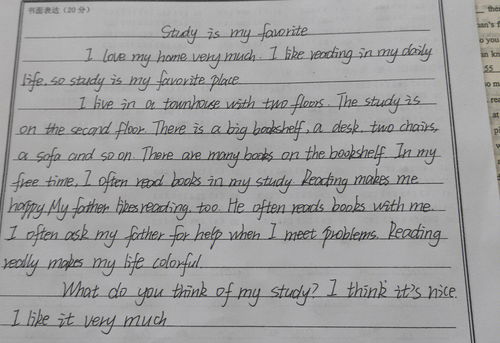 书面表达（20分）
Study is my favorite
I love my home very much. I like reading in my daily
life, so study is my favorite place
I live in a townhouse with two floors. The study is
on the second floor. There is a big bookshelf, a desk, two chairs,
a sofa and so on. There are many books on the bookshelf. In my
free time, I often read books in my study Reading makes me
happy. My father likes reading, too. He often reads books with me.
I often ask my father for help when I meet problems. Reading
really makes my life colorful.
What do you think of my study? I think it's nice.
I like it very much
55